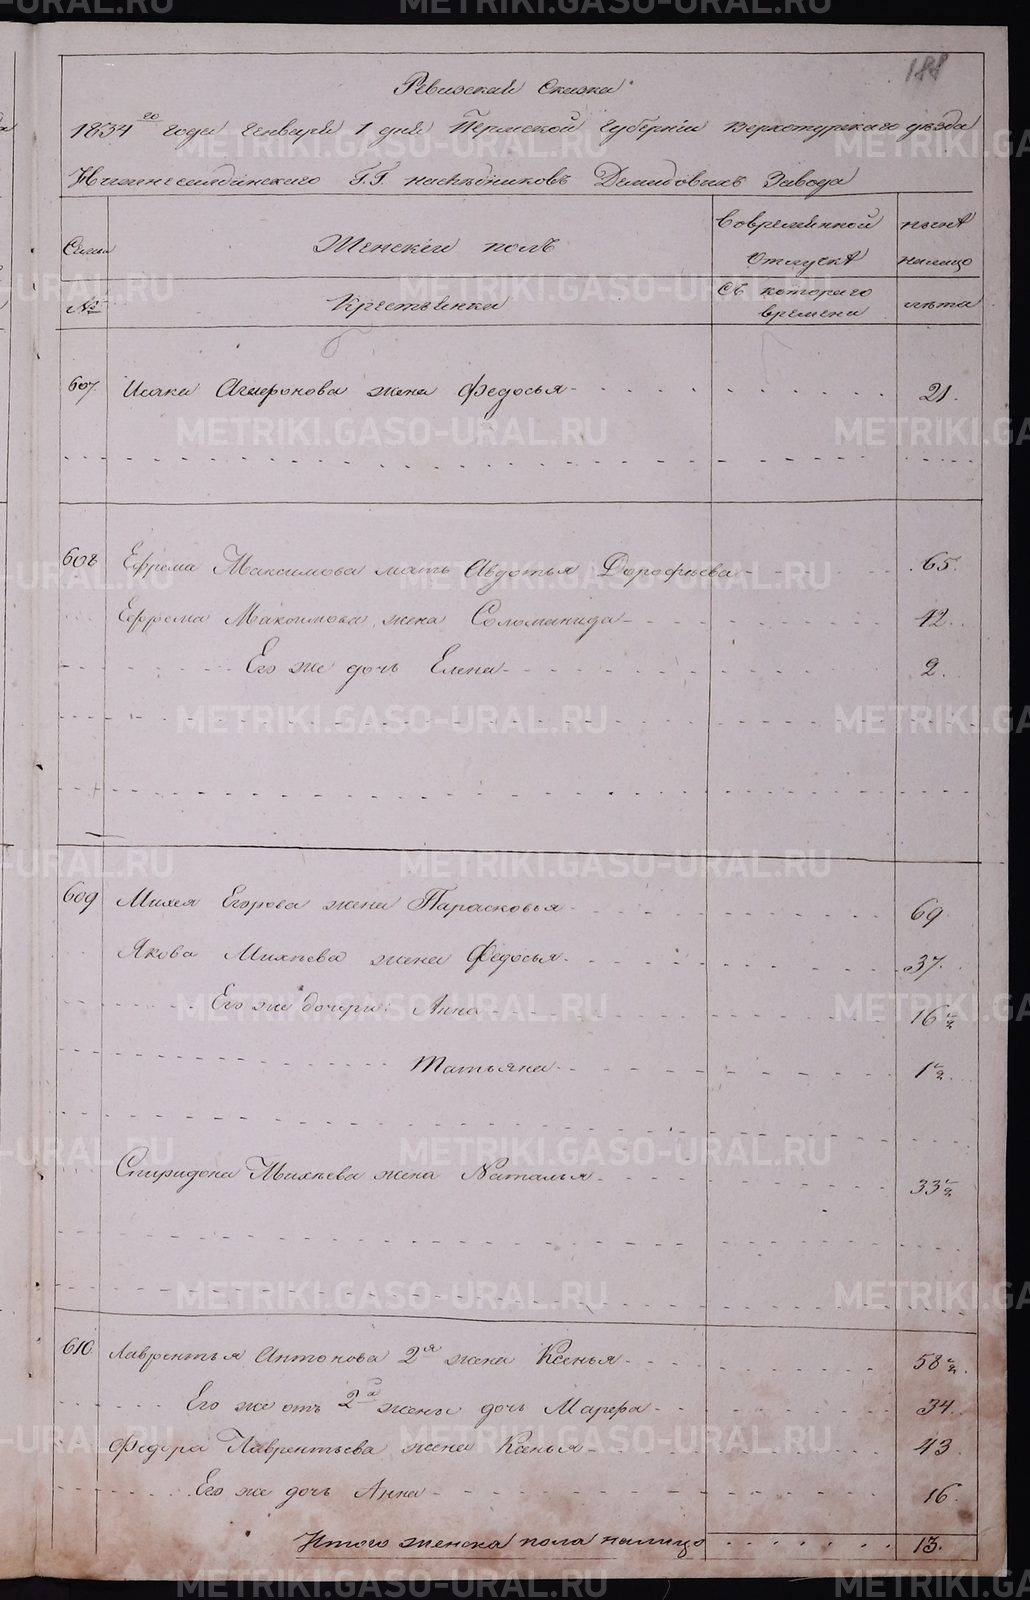 188
Ревизская Сказка
1834го года Генваря 1 дня Пермской Губернии Верхотурского уезда
Нижнесалдинского Г.Г. наследниковъ Демидовыхъ Завода
Семьи
Женскій полъ
Во временной отлучкѣ
нынѣ налицо
№
Крестьянка
Съ которого времени
лѣта
607. Исака Агафонова жена Федосья 21.
608 Ефрема Максимова мать Авдотья Дорофѣева 65.
Ефрема Максимова жена Соломанида 42.
Его же дочь Елена 2.
609 Михея Егорова жена Парасковья 69
Якова Михѣева жена Федосья 37.
Его же дочери: Анна 16 ½
Татьяна 1 ½
Спиридона Михѣева жена Наталья 33 ½
610 Лаврентья Антонова 2я жена Ксенья 58 ½.
Его же отъ 2й жены дочь Марфа 34.
Федора Лаврентьева жена Ксенья 43
Его же дочь Анна 16.
Итого женска пола налицо 13.
METRIKI.GASO-URAL.RU